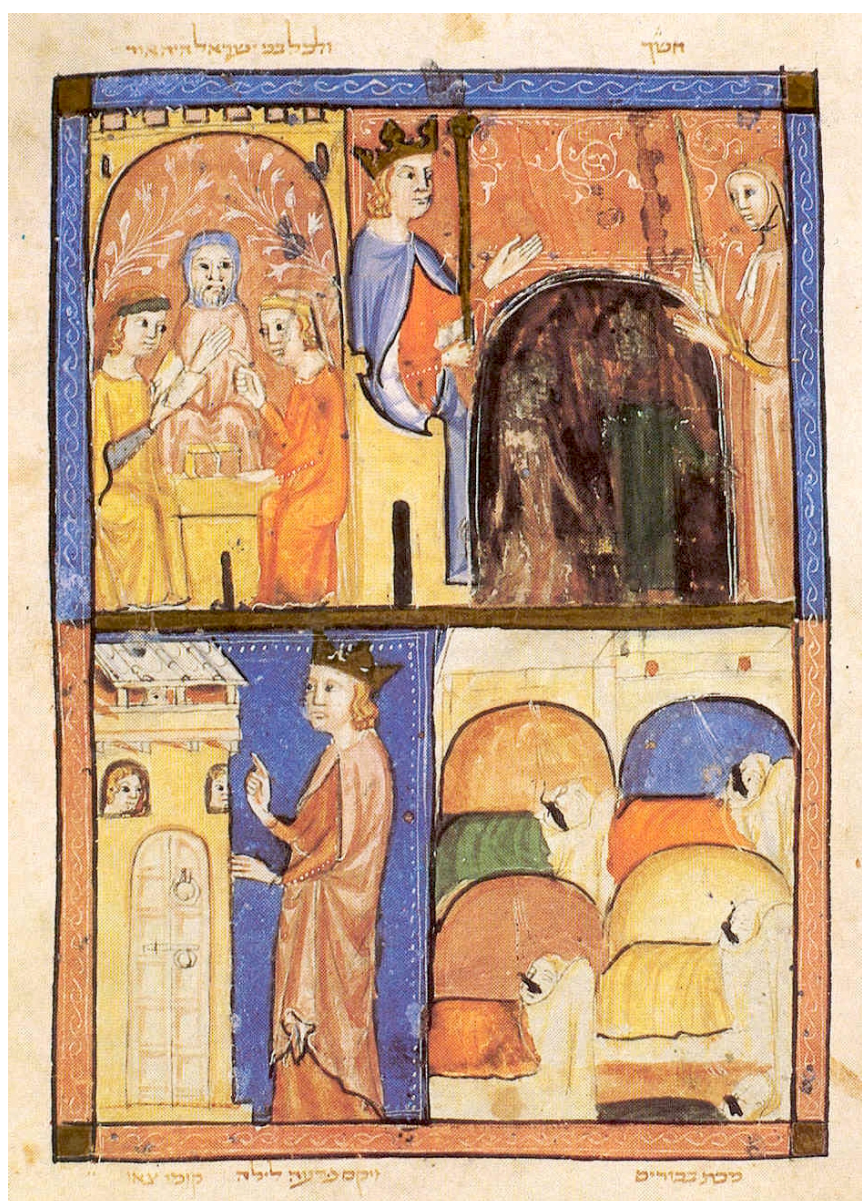 חשך
ולכל בני ישראל היה אור
מכת בכורים
ויקם פרעה לילה
קומו צאו